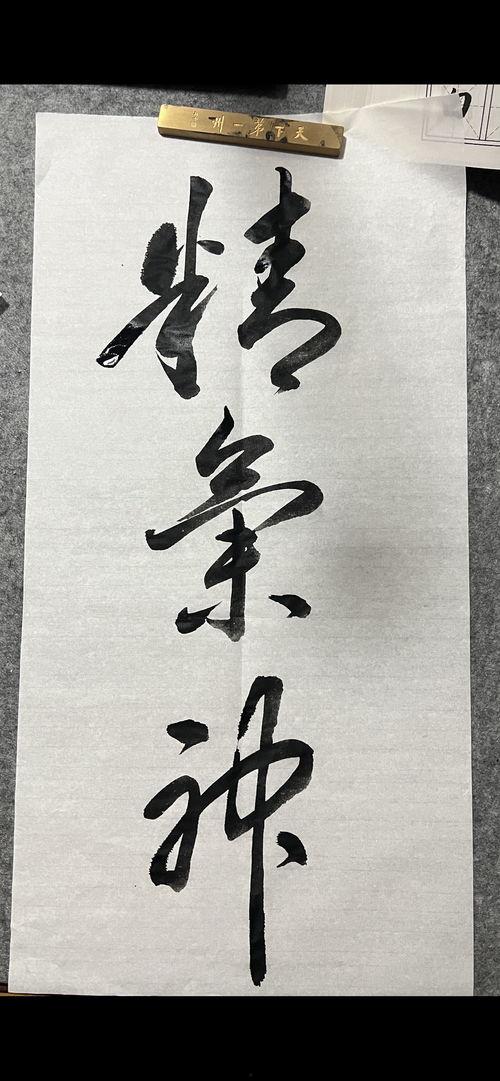 天下第一州
精
氣
神